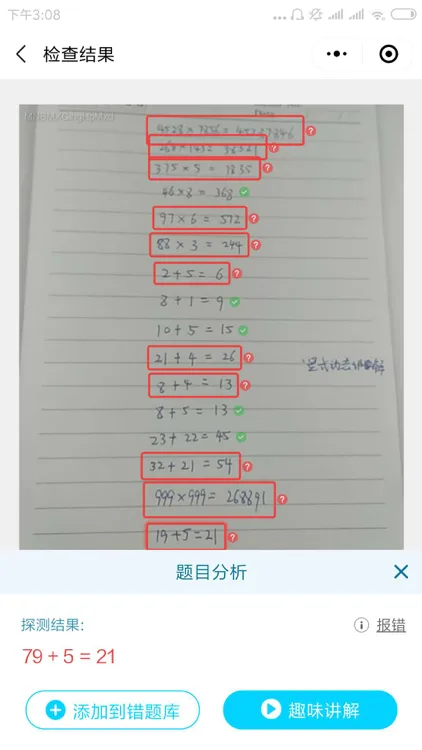 下午3:08
检查结果
4528 × 7856 = 45787846
268 × 1432 = 38521
375 × 5 = 1835
46 × 8 = 368
97 × 6 = 572
88 × 3 = 244
2 + 5 = 6
8 + 1 = 9
10 + 5 = 15
21 + 4 = 26
8 + 4 = 13
8 + 5 = 13
23 + 22 = 45
32 + 21 = 54
999 × 999 = 268891
19 + 5 = 21
题目分析
探测结果:
报错
79 + 5 = 21
添加到错题库
趣味讲解